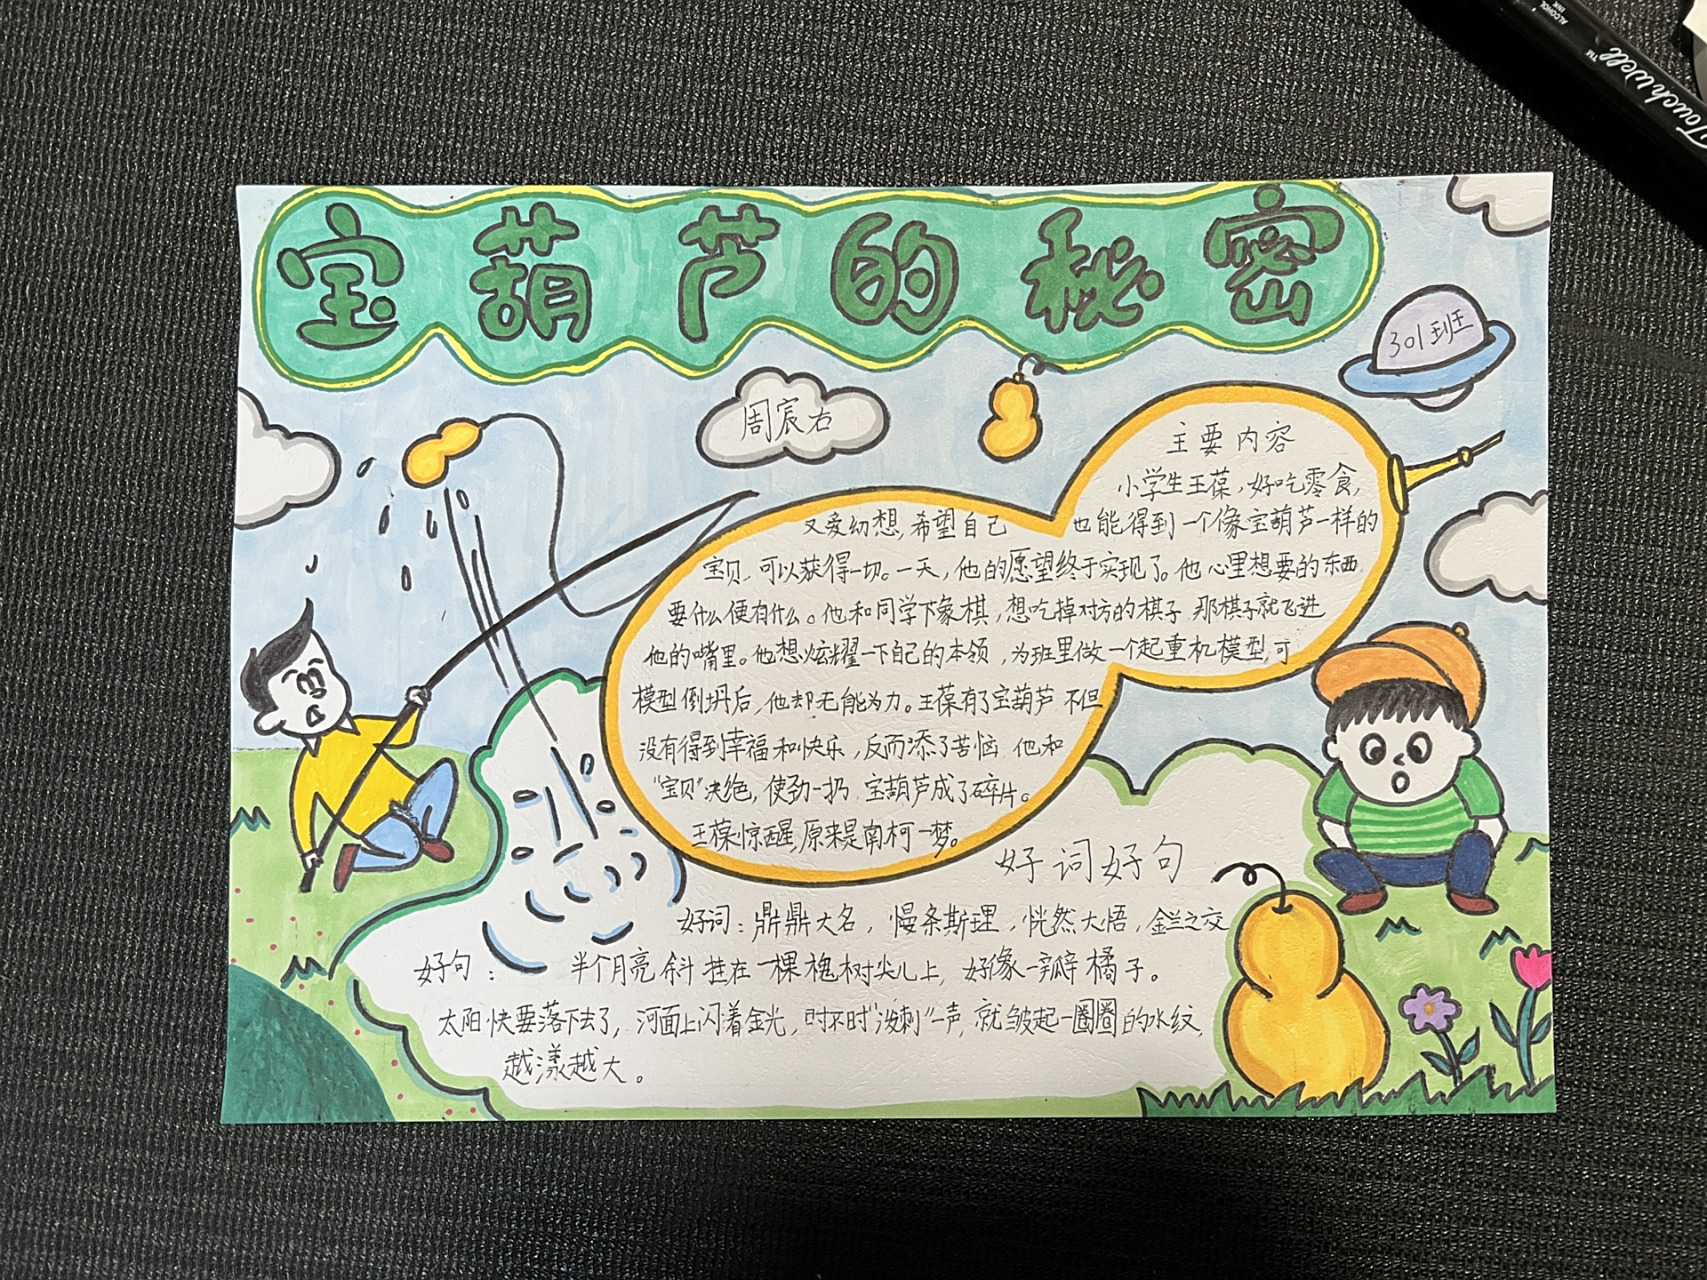 宝葫芦的秘密
301班
周宸右
主要内容
小学生王葆,好吃零食,
又爱幻想,希望自己也能得到一个像宝葫芦一样的
宝贝,可以获得一切。一天,他的愿望终于实现了。他心里想要的东西,
要什么便有什么。他和同学下象棋,想吃掉对方的棋子,那棋子就飞进
他的嘴里。他想炫耀一下自己的本领,为班里做一个起重机模型,可
模型倒坍后,他却无能为力。王葆有了宝葫芦 不但
没有得到幸福和快乐,反而添了苦恼 他和
“宝贝”决绝,使劲一扔,宝葫芦成了碎片。
王葆惊醒,原来是南柯一梦。
好词好句
好词:鼎鼎大名,慢条斯理,恍然大悟,金兰之交
好句: 半个月亮斜挂在一棵槐树尖儿上,好像一瓣橘子。
太阳快要落下去了,河面上闪着金光,时不时“泼刺”一声,就皱起一圈圈的水纹,
越漾越大。
Touchwell™
ALCOHOL
INK